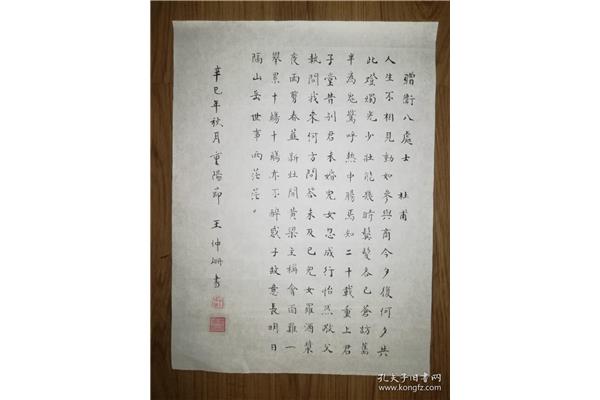 贈衛八處士 杜甫
人生不相見動如參與商今夕復何夕共
此燈燭光少壯能幾時鬢髮各已蒼訪舊
半為鬼驚呼熱中腸焉知二十載重上君
子堂昔別君未婚兒女忽成行怡然敬父
執問我來何方問答未及已兒女羅酒漿
夜雨剪春韭新炊間黃粱主稱會面難一
舉累十觴十觴亦不醉感子故意長明日
隔山岳世事兩茫茫。
辛巳年秋月重陽節 王仲珊書
孔夫子旧书网
www.kongfz.com